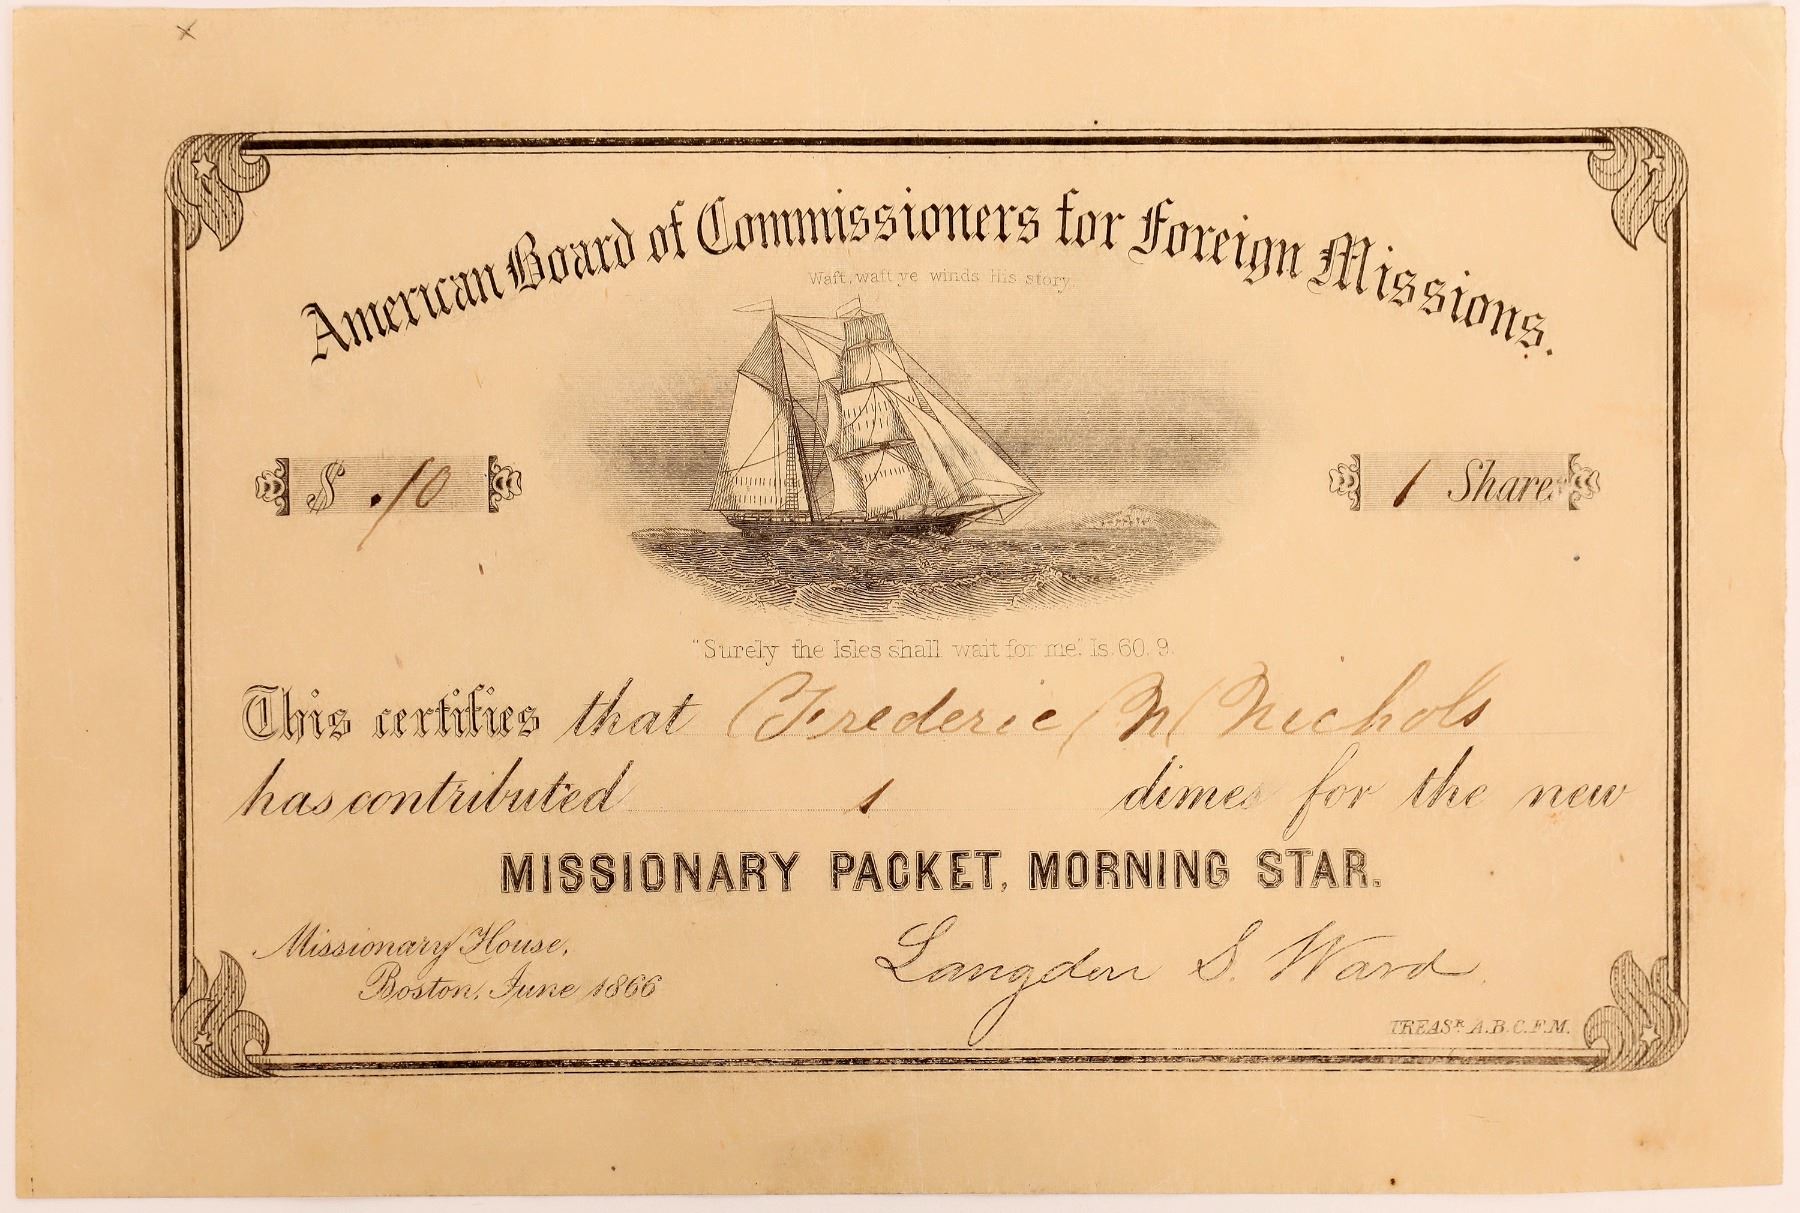 American Board of Commissioners for Foreign Missions.
Waft, waft ye winds His story,
$ .10
1 Shares
"Surely the Isles shall wait for me." Is. 60. 9.
This certifies that Frederic N Nichols
has contributed 1 dimes for the new
MISSIONARY PACKET, MORNING STAR.
Missionary House,
Boston, June 1866
Langdon S. Ward.
TREASR. A.B.C.F.M.